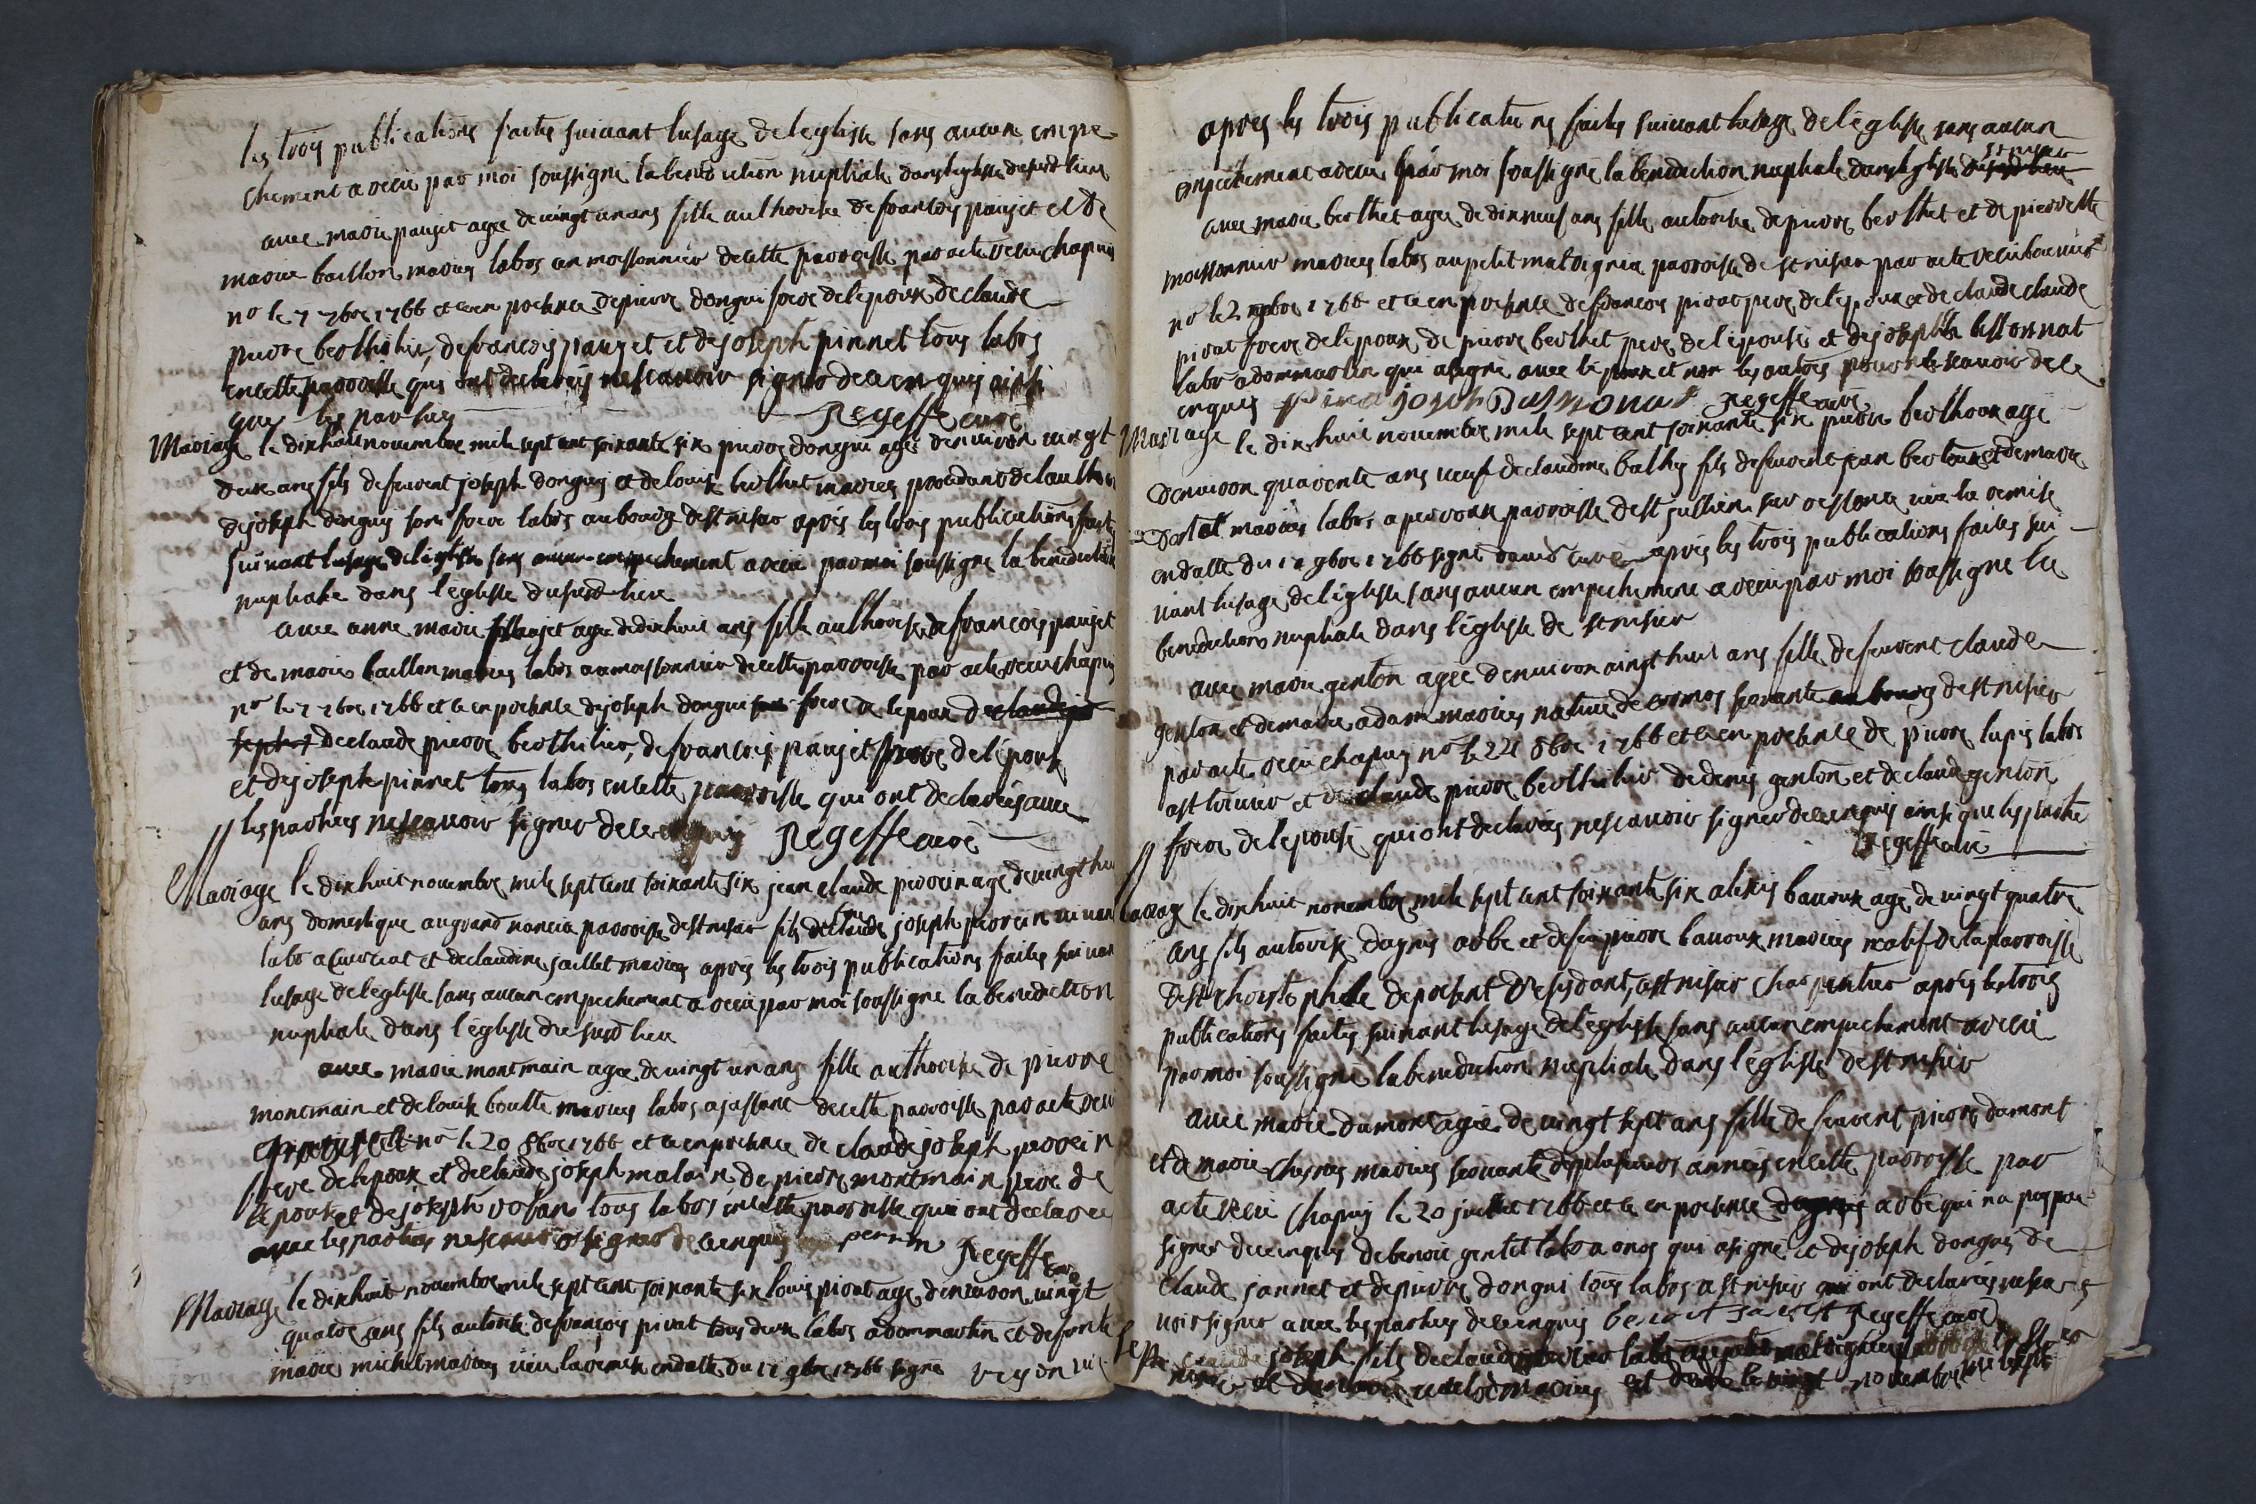 les trois publications faites suivant lusage de leglisse sans aucun empe
chement a recu par moi soussigné la benediction nuptiale dans leglisse dususd lieu
avec marie pauget agee de vingt un ans fille authorisée de francois pauget et de
marie baillon mariés labrs au moissonnier de cette parroisse par acte recu chapuis
nre le 7 7bre 1766 et ce en presence de pierre dongui frere de lepoux de claude
pierre berthilier, de francois pauget et de joseph pinnet tous labrs
en cette parroisse qui ont declarés ne scavoir signer de ce enquis ainsi
que les parties Regeffe curé
Mariage le dixhuit novembre mile sept cent soixante six pierre dongui agé denviron vingt
deux ans fils de feuvent joseph donguy et de louise berthet mariés procedant de lauthor
de joseph donguy son frere labrs au bourg de st nisier aprés les trois publications faites
suivant lusage de leglisse sans aucun empechement a recu par moi soussigné la benediction
nuptiale dans l'eglisse dususd lieu
avec anne marie pauget agee de dixhuit ans fille authorisée de francois pauget
et de marie baillon mariés labrs au moissonnier de cette parroisse par acte recu chapuis
nre le 7 7bre 1766 et ce en presence de joseph dongui frere de lepoux de claude jo
seph de claude pierre berthilier, de francois pauget pere de lépouse
et de joseph pinnet tous labrs en cette parroisse qui ont declarés avec
les parties ne scavoir signer de ce enquis Regeffe curé
Mariage le dixhuit novembre mile sept cent soixante six jean claude perrein agé de vingt huit
ans domestique au grand nancia parroisse de st nisier fils de claude joseph perrein vivant
labr a curciat et de claudine jaillet mariés aprés les trois publications faites suivant
lusage de leglisse sans aucun empechement a recu par moi soussigné la benediction
nuptiale dans l'églisse dusursd lieu
avec marie montmain agée de vingt un ans fille authorisée de pierre
montmain et de louise boutte mariés labrs a jassans de cette parroisse par acte recu
nre le 20 8bre 1766 et ce en presence de claude joseph perrein
frere de lepoux et de claude joseph malain de pierre montmain pere de
lepouse et de joseph tous labrs en cette parroisse qui ont declarés
avec les parties ne scavoir signer de ce enquis perrin Regeffe curé
Mariage le dixhuit novembre mile sept cent soixante six louis pivat agé denviron vingt
quatre ans fils autorisé de françois pivat tous deux labrs a dommartin et de feue
marie michel mariés veu la remise en datte du 17 9bre 1766 signé veyon vic
aprés les trois publications faites suivant lusage de l'églisse sans aucun
st nisier
empéchement a recu par moi soussigné la benediction nuptiale dans leglisse dusursd lieu
avec marie berthet agée de dixneuf ans fille autorisée de pierre berthet et de pierrette
moissonnier mariés labrs au petit malvignia parroisse de st nisier par acte recu
nre le 2 9bre 1766 et ce en presence de francois pivat pere de l'epoux de claude claude
pivat frere de lépoux de pierre berthet pere de lépouse et de joseph bessonnat
labr a dommartin qui a signé avec lépoux et non les autres pour ne scavoir de ce
enquis piva joseph Regeffe curé
Mariage le dix huit novembre mile sept cent soixante six pierre berthoux agé
denviron quarente ans veuf de claudine bathy fils de feuvent jean berthoux et de marie
mariés labrs a perroux parroisse de st jullien sur ressouze veu la remise
en datte du 12 9bre 1766 signé david curé aprés les trois publications faites sui
vant lusage de l'églisse sans aucun empechement a recu par moi soussigné la
benediction nuptiale dans l'églisse de st nisier
avec marie genton agée denviron vingt huit ans fille de feuvent claude
genton et de marie adam mariés native de cormos servante au bourg de st nisier
par acte recu chapuy nre le 24 8bre 1766 et ce en presence de pierre lupis labr
a st trivier et de claude pierre berthilier de denis genton et de claude genton
frere de lepouse qui ont declarés ne scavoir signer de ce enquis ainsi que les parties
Regeffe curé
Mariage le dixhuit novembre mile sept cent soixante six alexis bavoux agé de vingt quatre
ans fils autorisé dagnis aobe et de feu pierre bavoux mariés natif de la parroisse
de st christophle de present residant, a st nisier charpentier aprés les trois
publications faites suivant lusage de léglisse sans aucun empechement a recu
par moi soussigné la benediction nuptiale dans l'églisse de st nisier
avec marie dumont agée de vingt sept ans fille de feuvent pierre dumont
et de marie chesnes mariés servante despluseiurs années en cette parroisse par
acte recu chapuy le 20 juillet 1766 et ce en presence dagnis aobe qui na peu
signer de ce enquis de benoit gentet labr a onos qui a signé et de joseph donguy de
claude jannet et de pierre dongui tous labrs a st nisier qui ont declarés ne sca
voir signer avec les parties de ce enquis benoit Regeffe curé
claude joseph fils de claude labr au petit malvignia parroisse de st
nisier et de mariés est dece le vingt novembre mile sept